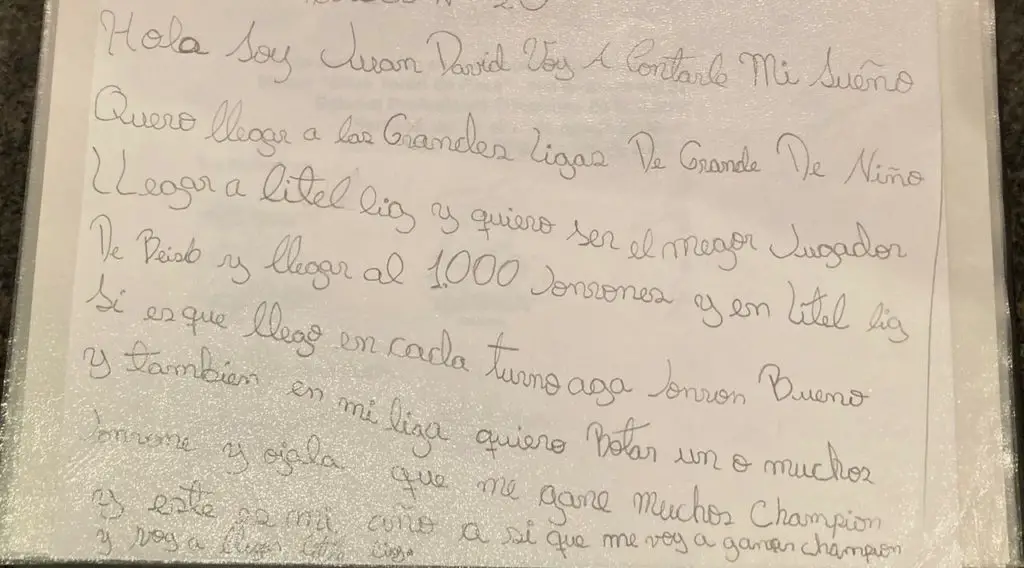 Hola Soy Juan David Voy A Contarle Mi Sueño
Quero llegar a las Grandes Ligas De Grande De Niño
LLegar a litel lig y quiero ser el megor Jugador
De Beisb y llegar al 1.000 Jonrones y en litel lig
Si es que llego en cada turno aga Jonron Bueno
y tambien en mi liga quiero Botar un o muchos
Jonrone y ojala que me gane muchos Champion
y este es mi año a si que me voy a ganar champion
y voy a